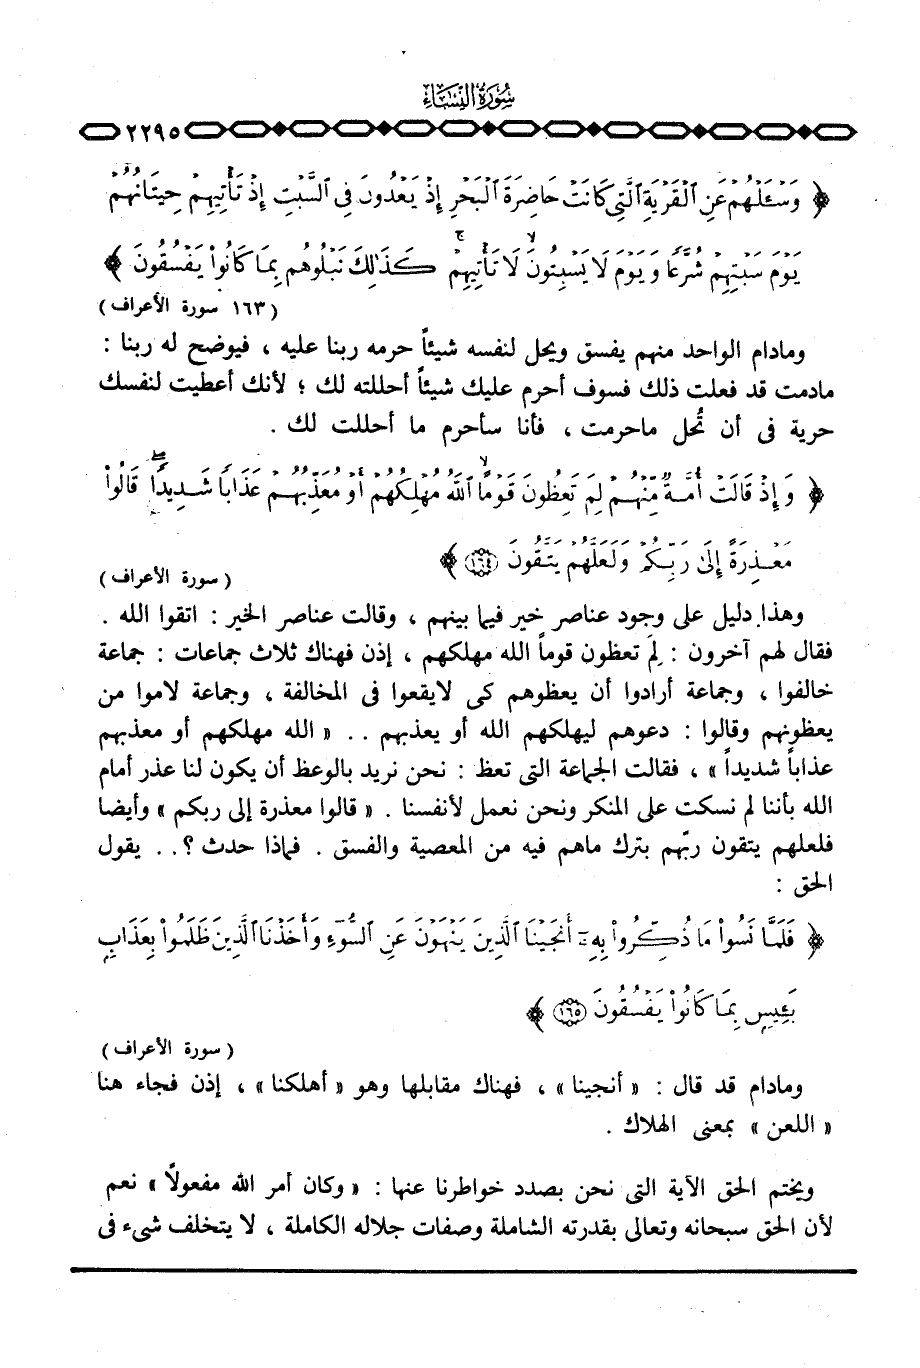 سُورَةُ النِّسَاءِ
٢٢٩٥
﴿ وَسْـَٔلْهُمْ عَنِ ٱلْقَرْيَةِ ٱلَّتِى كَانَتْ حَاضِرَةَ ٱلْبَحْرِ إِذْ يَعْدُونَ فِى ٱلسَّبْتِ إِذْ تَأْتِيهِمْ حِيتَانُهُمْ
يَوْمَ سَبْتِهِمْ شُرَّعًا وَيَوْمَ لَا يَسْبِتُونَ ۙ لَا تَأْتِيهِمْ ۚ كَذَٰلِكَ نَبْلُوهُم بِمَا كَانُوا۟ يَفْسُقُونَ ﴾
( ١٦٣ سورة الأعراف )
ومادام الواحد منهم يفسق ويحل لنفسه شيئاً حرمه ربنا عليه ، فيوضح له ربنا :
مادمت قد فعلت ذلك فسوف أحرم عليك شيئاً أحللته لك ؛ لأنك أعطيت لنفسك
حرية فى أن تُحل ماحرمت ، فأنا سأحرم ما أحللت لك .
﴿ وَإِذْ قَالَتْ أُمَّةٌ مِّنْهُمْ لِمَ تَعِظُونَ قَوْمًا ۙ ٱللَّهُ مُهْلِكُهُمْ أَوْ مُعَذِّبُهُمْ عَذَابًا شَدِيدًا ۖ قَالُوا۟
مَعْذِرَةً إِلَىٰ رَبِّكُمْ وَلَعَلَّهُمْ يَتَّقُونَ ١٦٤ ﴾
( سورة الأعراف )
وهذا دليل على وجود عناصر خير فيما بينهم ، وقالت عناصر الخير : اتقوا الله .
فقال لهم آخرون : لِمَ تعظون قوماً الله مهلكهم ، إذن فهناك ثلاث جماعات : جماعة
خالفوا ، وجماعة أرادوا أن يعظوهم كى لايقعوا فى المخالفة ، وجماعة لاموا من
يعظونهم وقالوا : دعوهم ليهلكهم الله أو يعذبهم .. « الله مهلكهم أو معذبهم
عذاباً شديداً » ، فقالت الجماعة التى تعظ : نحن نريد بالوعظ أن يكون لنا عذر أمام
الله بأننا لم نسكت على المنكر ونحن نعمل لأنفسنا . « قالوا معذرة إلى ربكم » وأيضا
فلعلهم يتقون ربّهم بترك ماهم فيه من المعصية والفسق . فماذا حدث ؟ .. يقول
الحق :
﴿ فَلَمَّا نَسُوا۟ مَا ذُكِّرُوا۟ بِهِۦٓ أَنجَيْنَا ٱلَّذِينَ يَنْهَوْنَ عَنِ ٱلسُّوٓءِ وَأَخَذْنَا ٱلَّذِينَ ظَلَمُوا۟ بِعَذَابٍۭ
بَـِٔيسٍۭ بِمَا كَانُوا۟ يَفْسُقُونَ ١٦٥ ﴾
( سورة الأعراف )
ومادام قد قال : « أنجينا » ، فهناك مقابلها وهو « أهلكنا » ، إذن فجاء هنا
« اللعن » بمعنى الهلاك .
ويختم الحق الآية التى نحن بصدد خواطرنا عنها : « وكان أمر الله مفعولاً » نعم
لأن الحق سبحانه وتعالى بقدرته الشاملة وصفات جلاله الكاملة ، لا يتخلف شىء فى